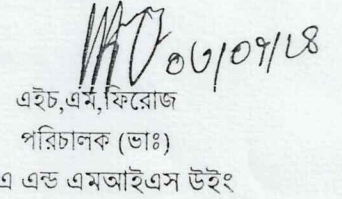 ০৬/০৭/২৪
এইচ,এম,ফিরোজ
পরিচালক (ভাঃ)
এ এন্ড এমআইএস উইং